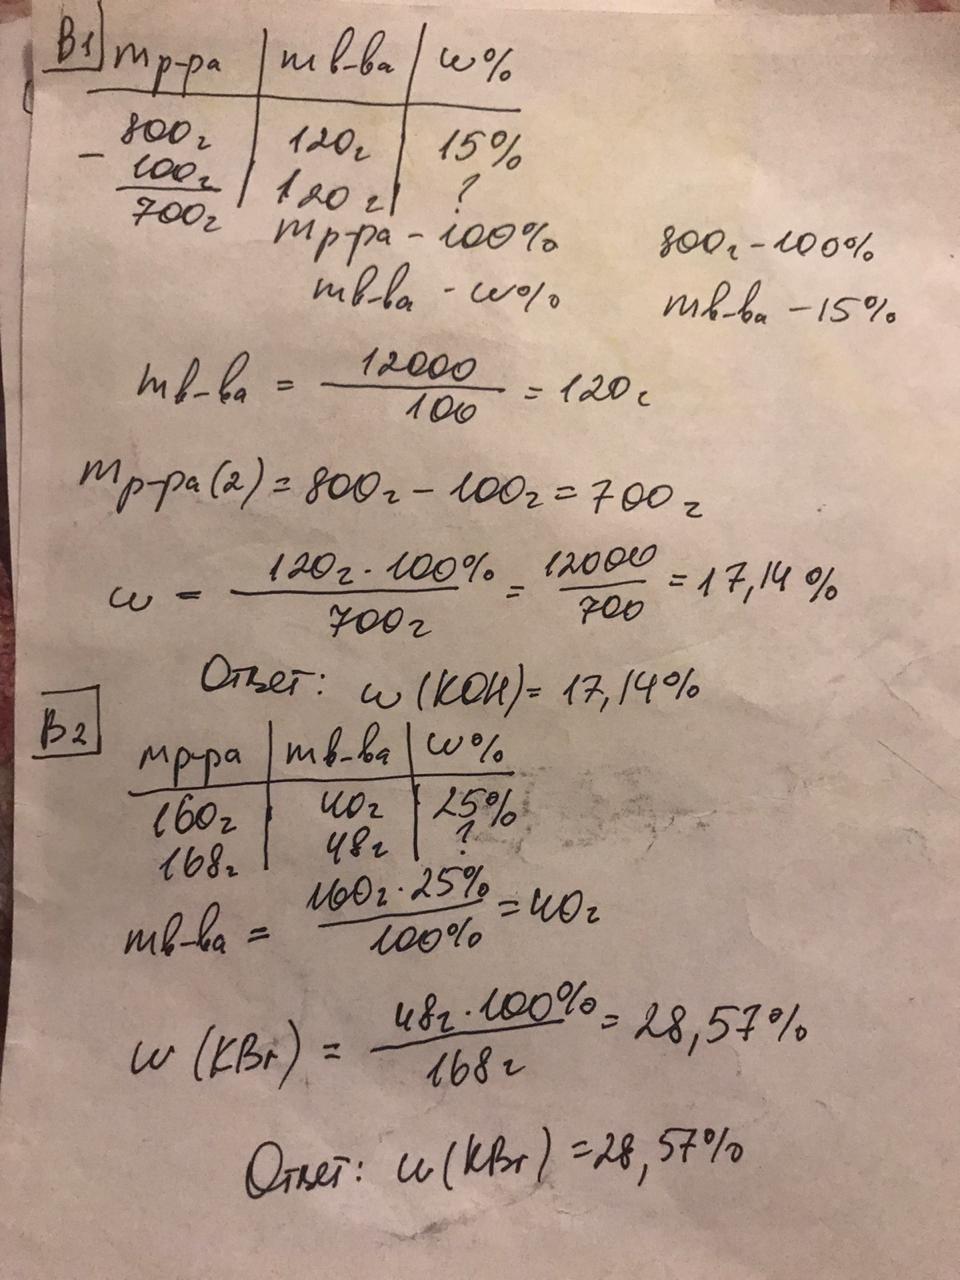 В1 mр-ра mв-ва w%
800г 120г 15%
- 100г 120г ?
700г
mр-ра - 100% 800г - 100%
mв-ва - w% mв-ва - 15%
mв-ва = 12000/100 = 120г
mр-ра(2) = 800г - 100г = 700г
w = 120г · 100%/700г = 12000/700 = 17,14%
Ответ: w (KOH) = 17,14%
В2
mр-ра mв-ва w%
160г 40г 25%
168г 48г ?
mв-ва = 160г · 25%/100% = 40г
w (KBr) = 48г · 100%/168г = 28,57%
Ответ: w (KBr) = 28,57%